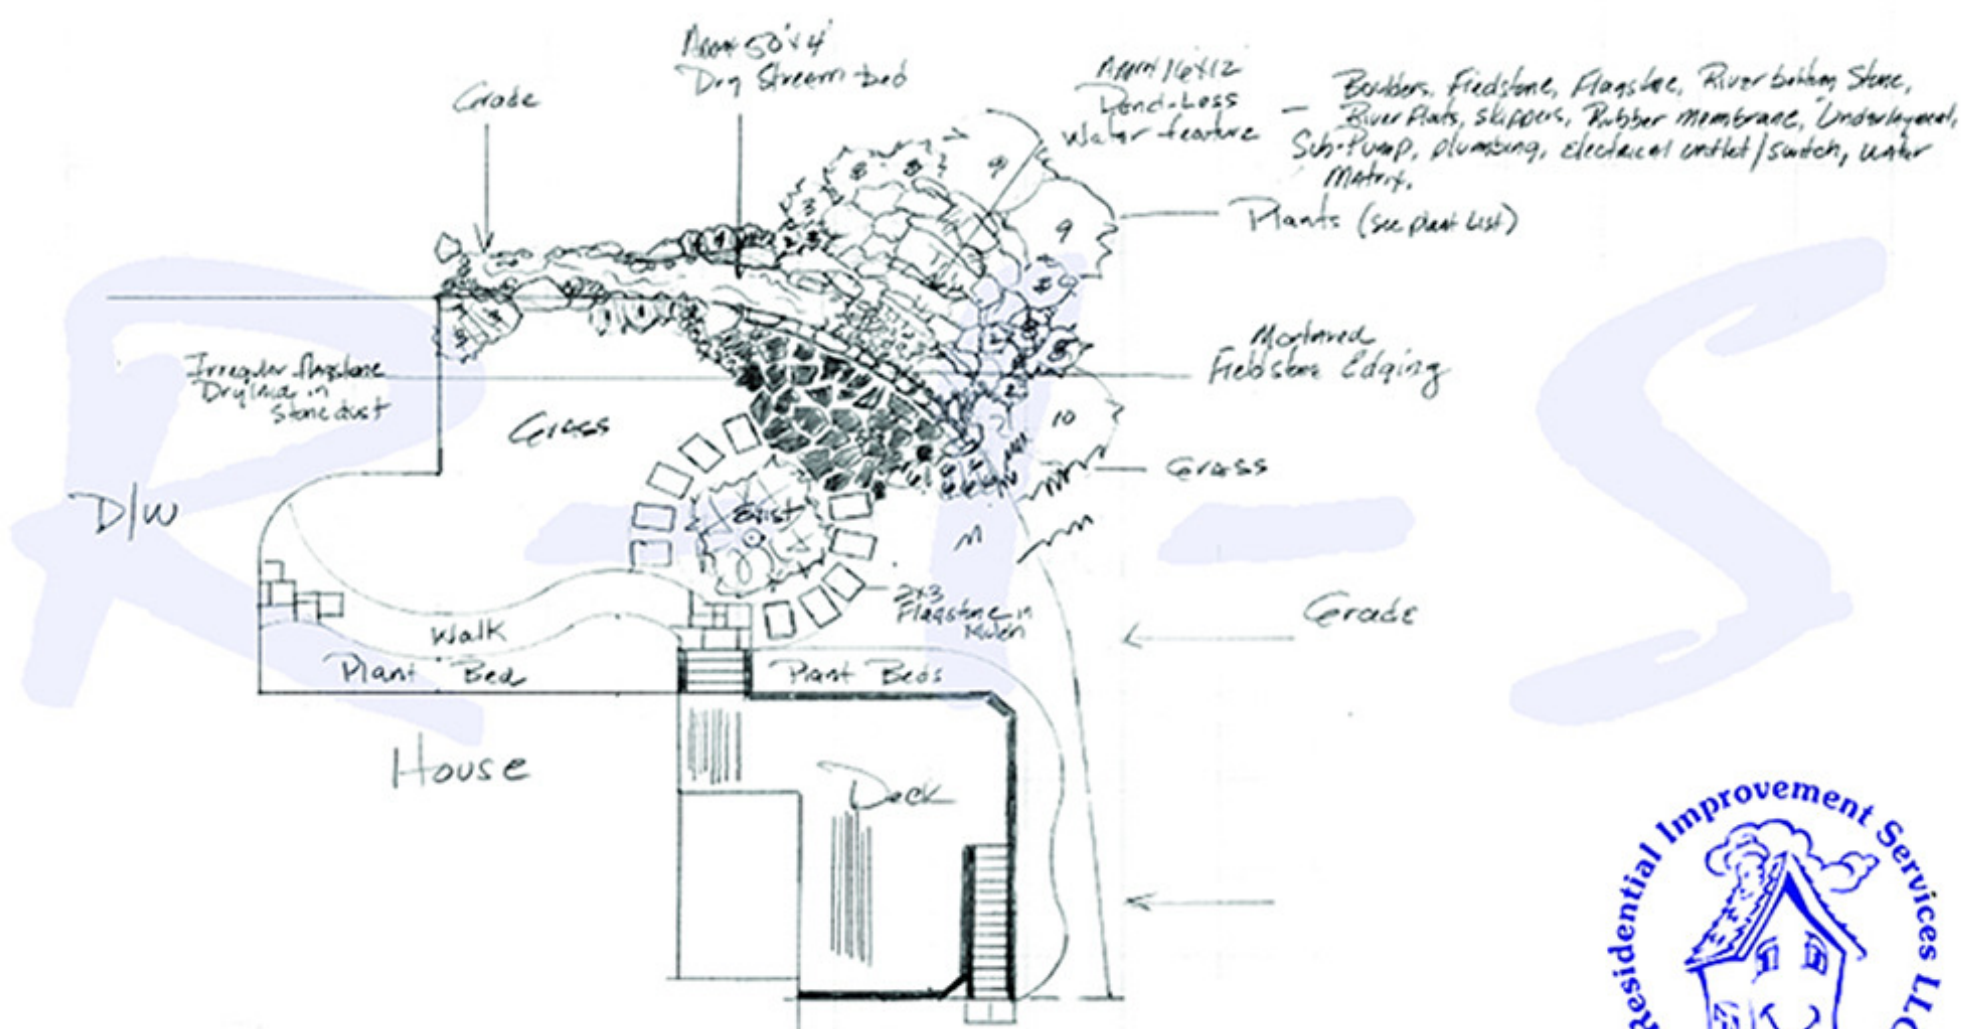 Approx 50'x4'
Dry Stream bed
Grade
Approx 16x12
Pond-Less
Water feature
Boulders, Fieldstone, Flagstone, River bottom Stone,
River flats, skippers, Rubber membrane, Underlayment,
Sub-Pump, plumbing, electrical outlet/switch, water
Matrix.
Plants (see plant list)
Mortared
Fieldstone Edging
Irregular flagstone
Drylaid in
Stonedust
Grass
10
Grass
D/W
Exist
2x3
Flagstone in
Mulch
Grade
Walk
Plant Bed
Plant Beds
House
Deck
R-I-S
Residential Improvement Services LLC
8
8
9
9
3